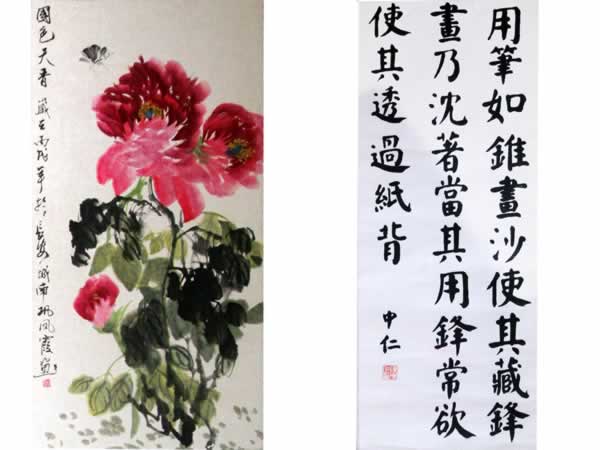 國色天香 歲在丙戌年於長安城南 凤霞畫
用筆如錐畫沙使其藏鋒
畫乃沈著當其用鋒常欲
使其透過紙背
申仁